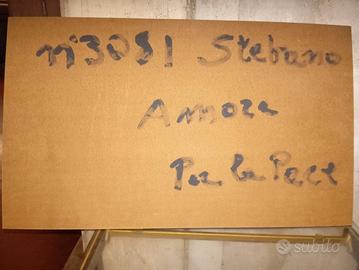 n°3081 Stefano
Amore
Per la Pace
subito